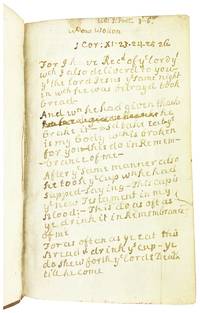 1 Cor: XI: 23: 24: 25: 26
For I have Recd of ye Lord yt
wch I also deliverd to you-
yt the Lord Jesus ye same night
in wch he was betrayd took
bread-
And wn he had given thanks
he
Brake it and said take eat ys
is my Body wch is broken
for you this do in Remem-
brance of me-
After ye same manner also
he took ye Cup wn he had
supped saying- This cup is
ye new Testament in my
Blood: This do as oft as
ye drink it in Remembrance
of me
For as often as ye eat this
Bread & drink ys cup- ye
do shew forth ye Lords Death
till he come